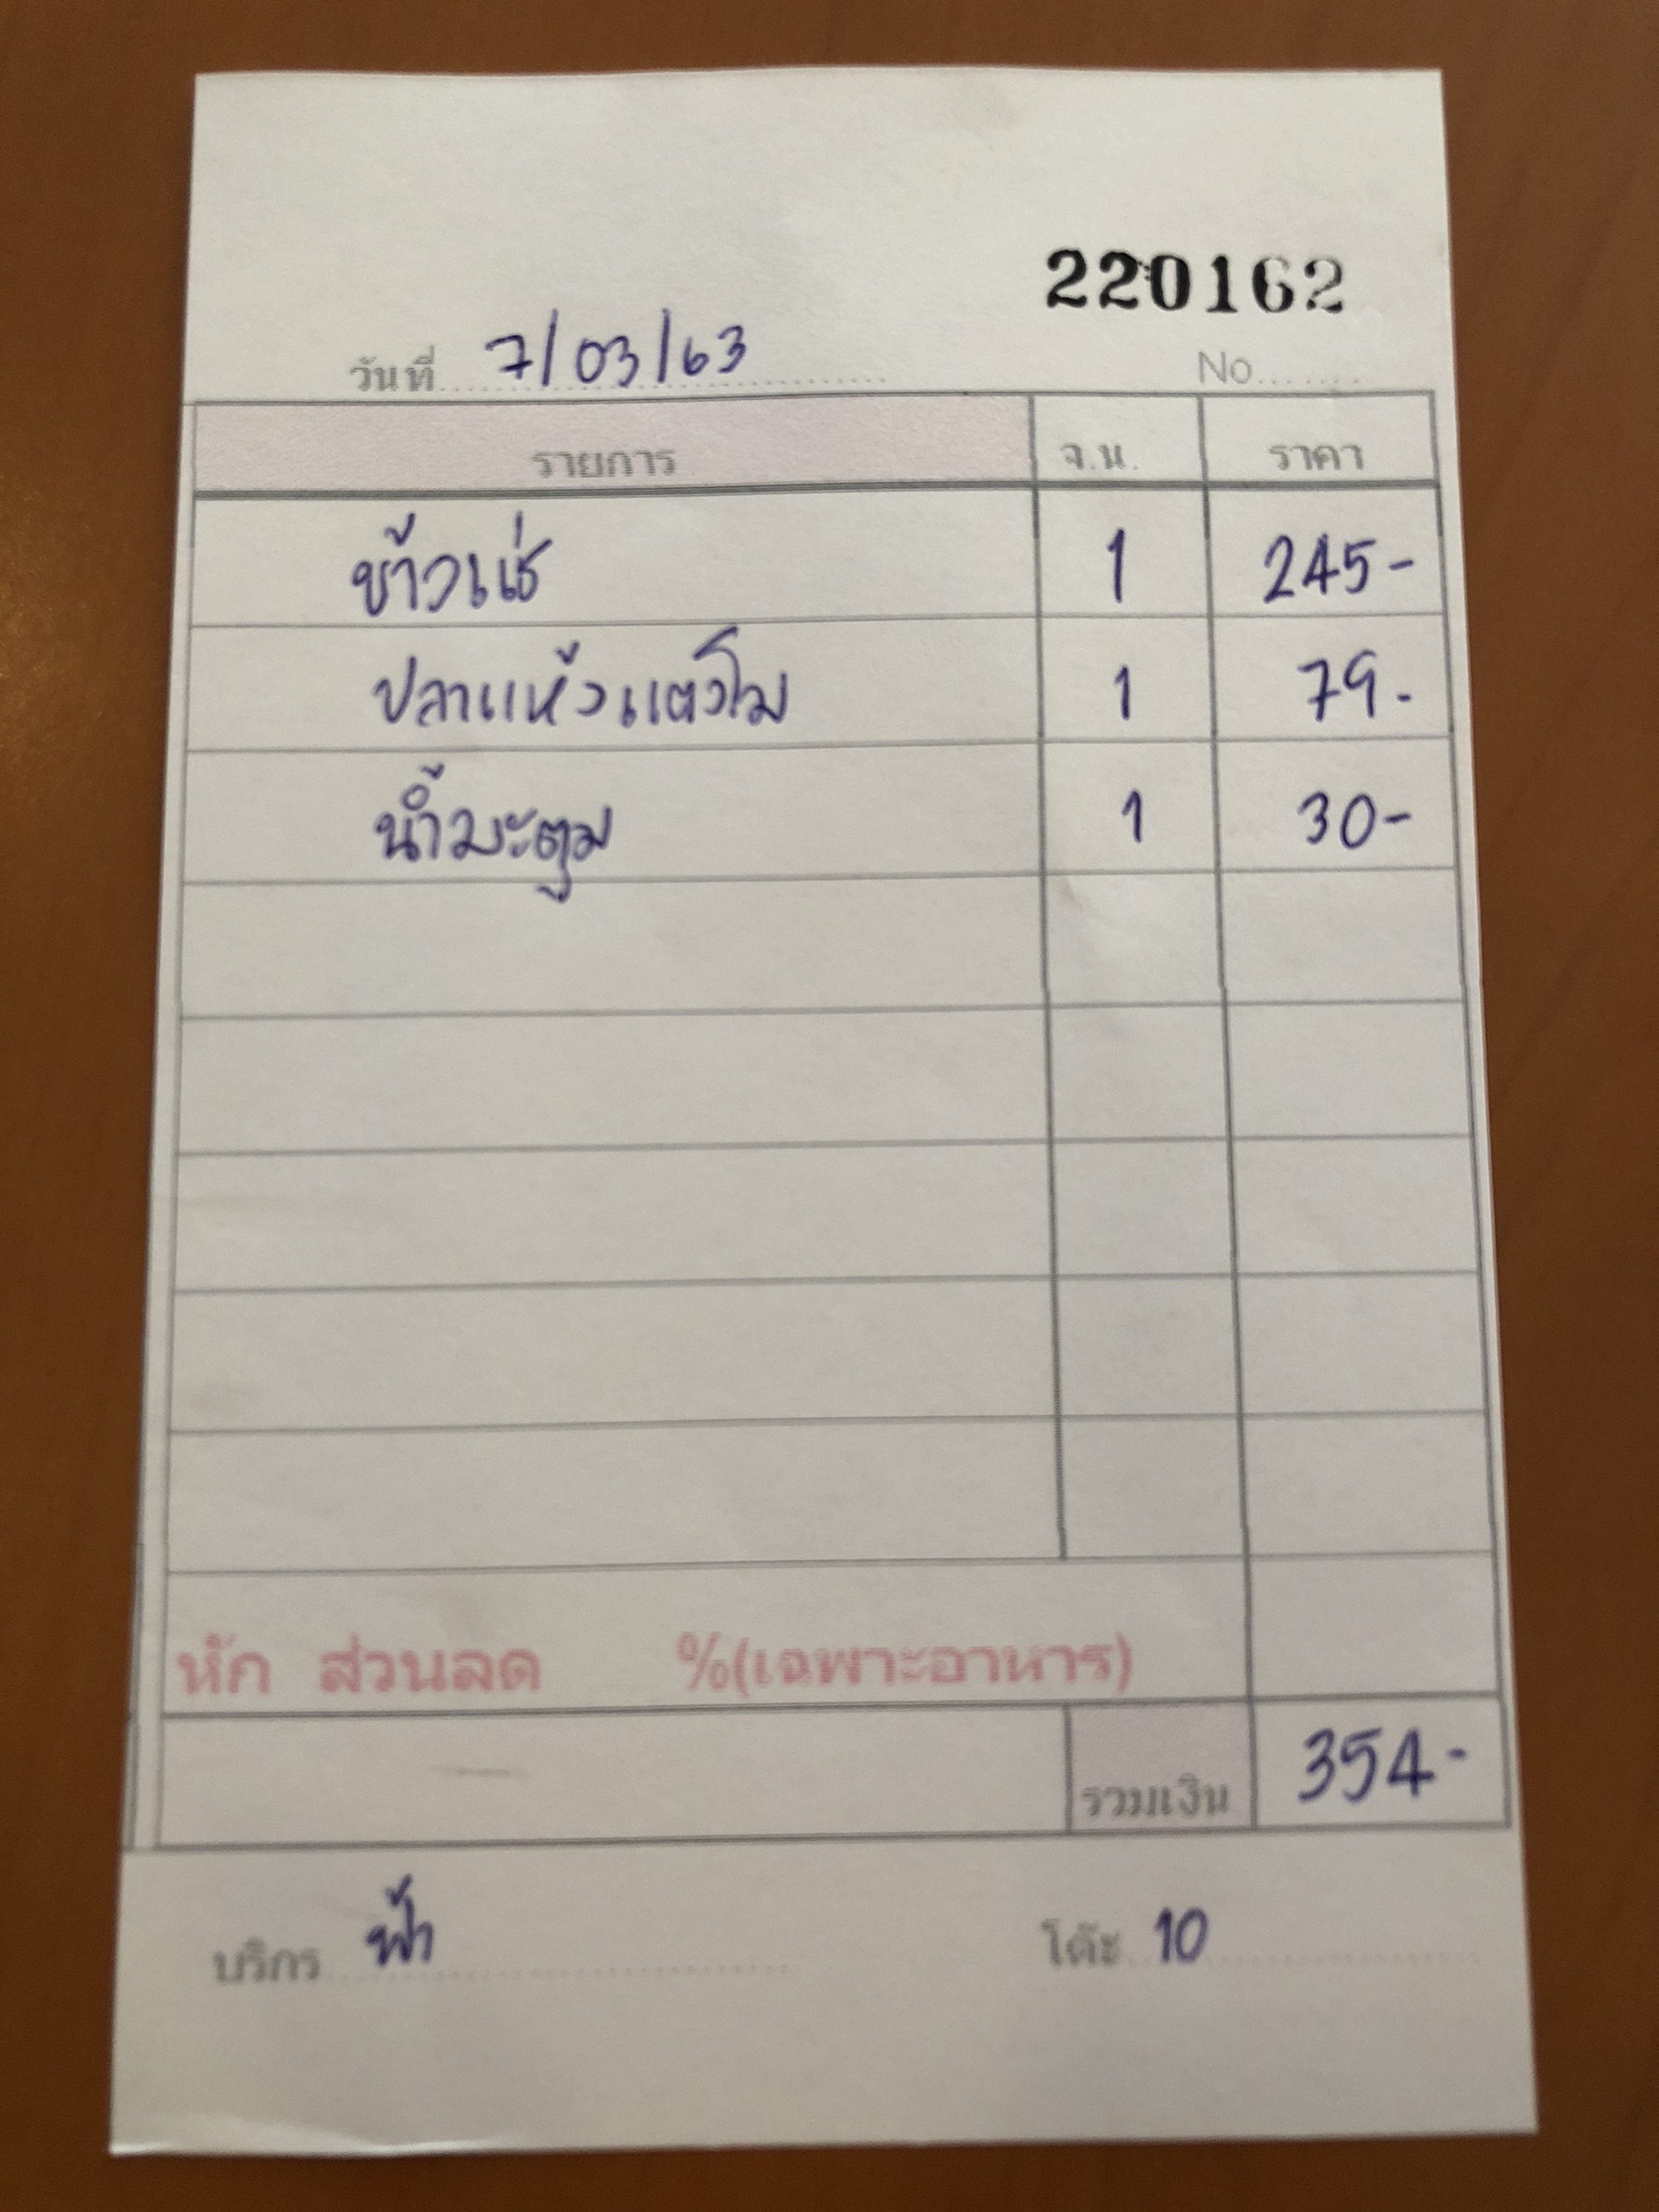 220162
วันที่ 7/03/63 No
รายการ จ.น. ราคา
ข้าวแช่ 1 245-
ปลาแห้งแตงโม 1 79-
น้ำมะตูม 1 30-
หัก ส่วนลด %(เฉพาะอาหาร)
รวมเงิน 354-
บริกร ฟ้า โต๊ะ 10